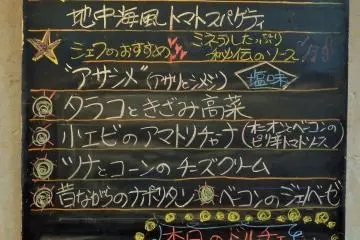 地中海風トマトスパゲティ
シェフのおすすめ ミネラルたっぷり 秘伝のソース
"アサシメ"(アサリとシメジ) 塩味
タラコときざみ高菜
小エビのアマトリチャーナ(オニオンとベーコンのピリ辛トマトソース)
ツナとコーンのチーズクリーム
昔ながらのナポリタン ベーコンのジェノベーゼ
本日のドルチェ